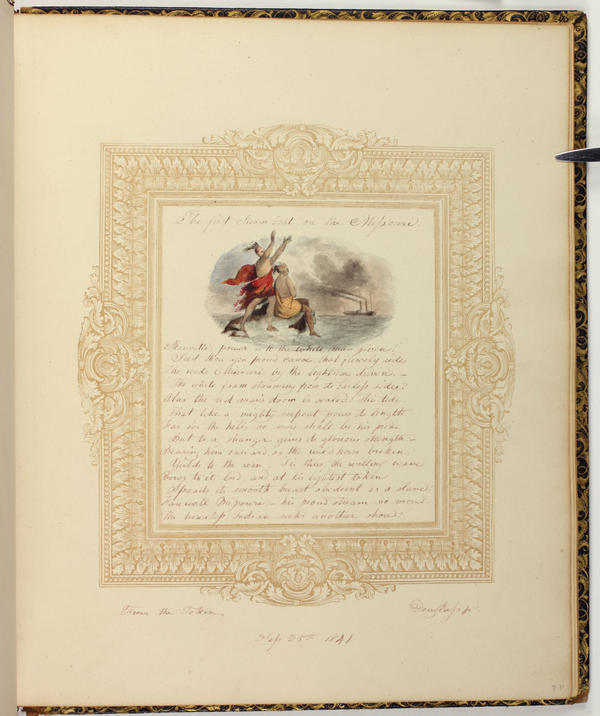 The first Steam boat on the Missouri.
Manitto's power is to the white man given!
Seest thou yon proud canoe, that fiercely rides
The wide Missouri by the lightning driven. —
The white foam streaming from its sides?
Alas the red man's doom is sealed! the tide
That like a mighty serpent pours its length
Far o'er the hills no more shall be his pride
But to a stranger gives its glorious strength —
Bearing him onward as the wild horse broken,
Yields to the rein. See thus the willing wave
Bows to its lord and at his lightest token
Spreads its smooth breast obedient as a slave!
Farewell Missouri — his proud stream no more
The homeless Indian seeks another shore!
From the Token.
25th 1841